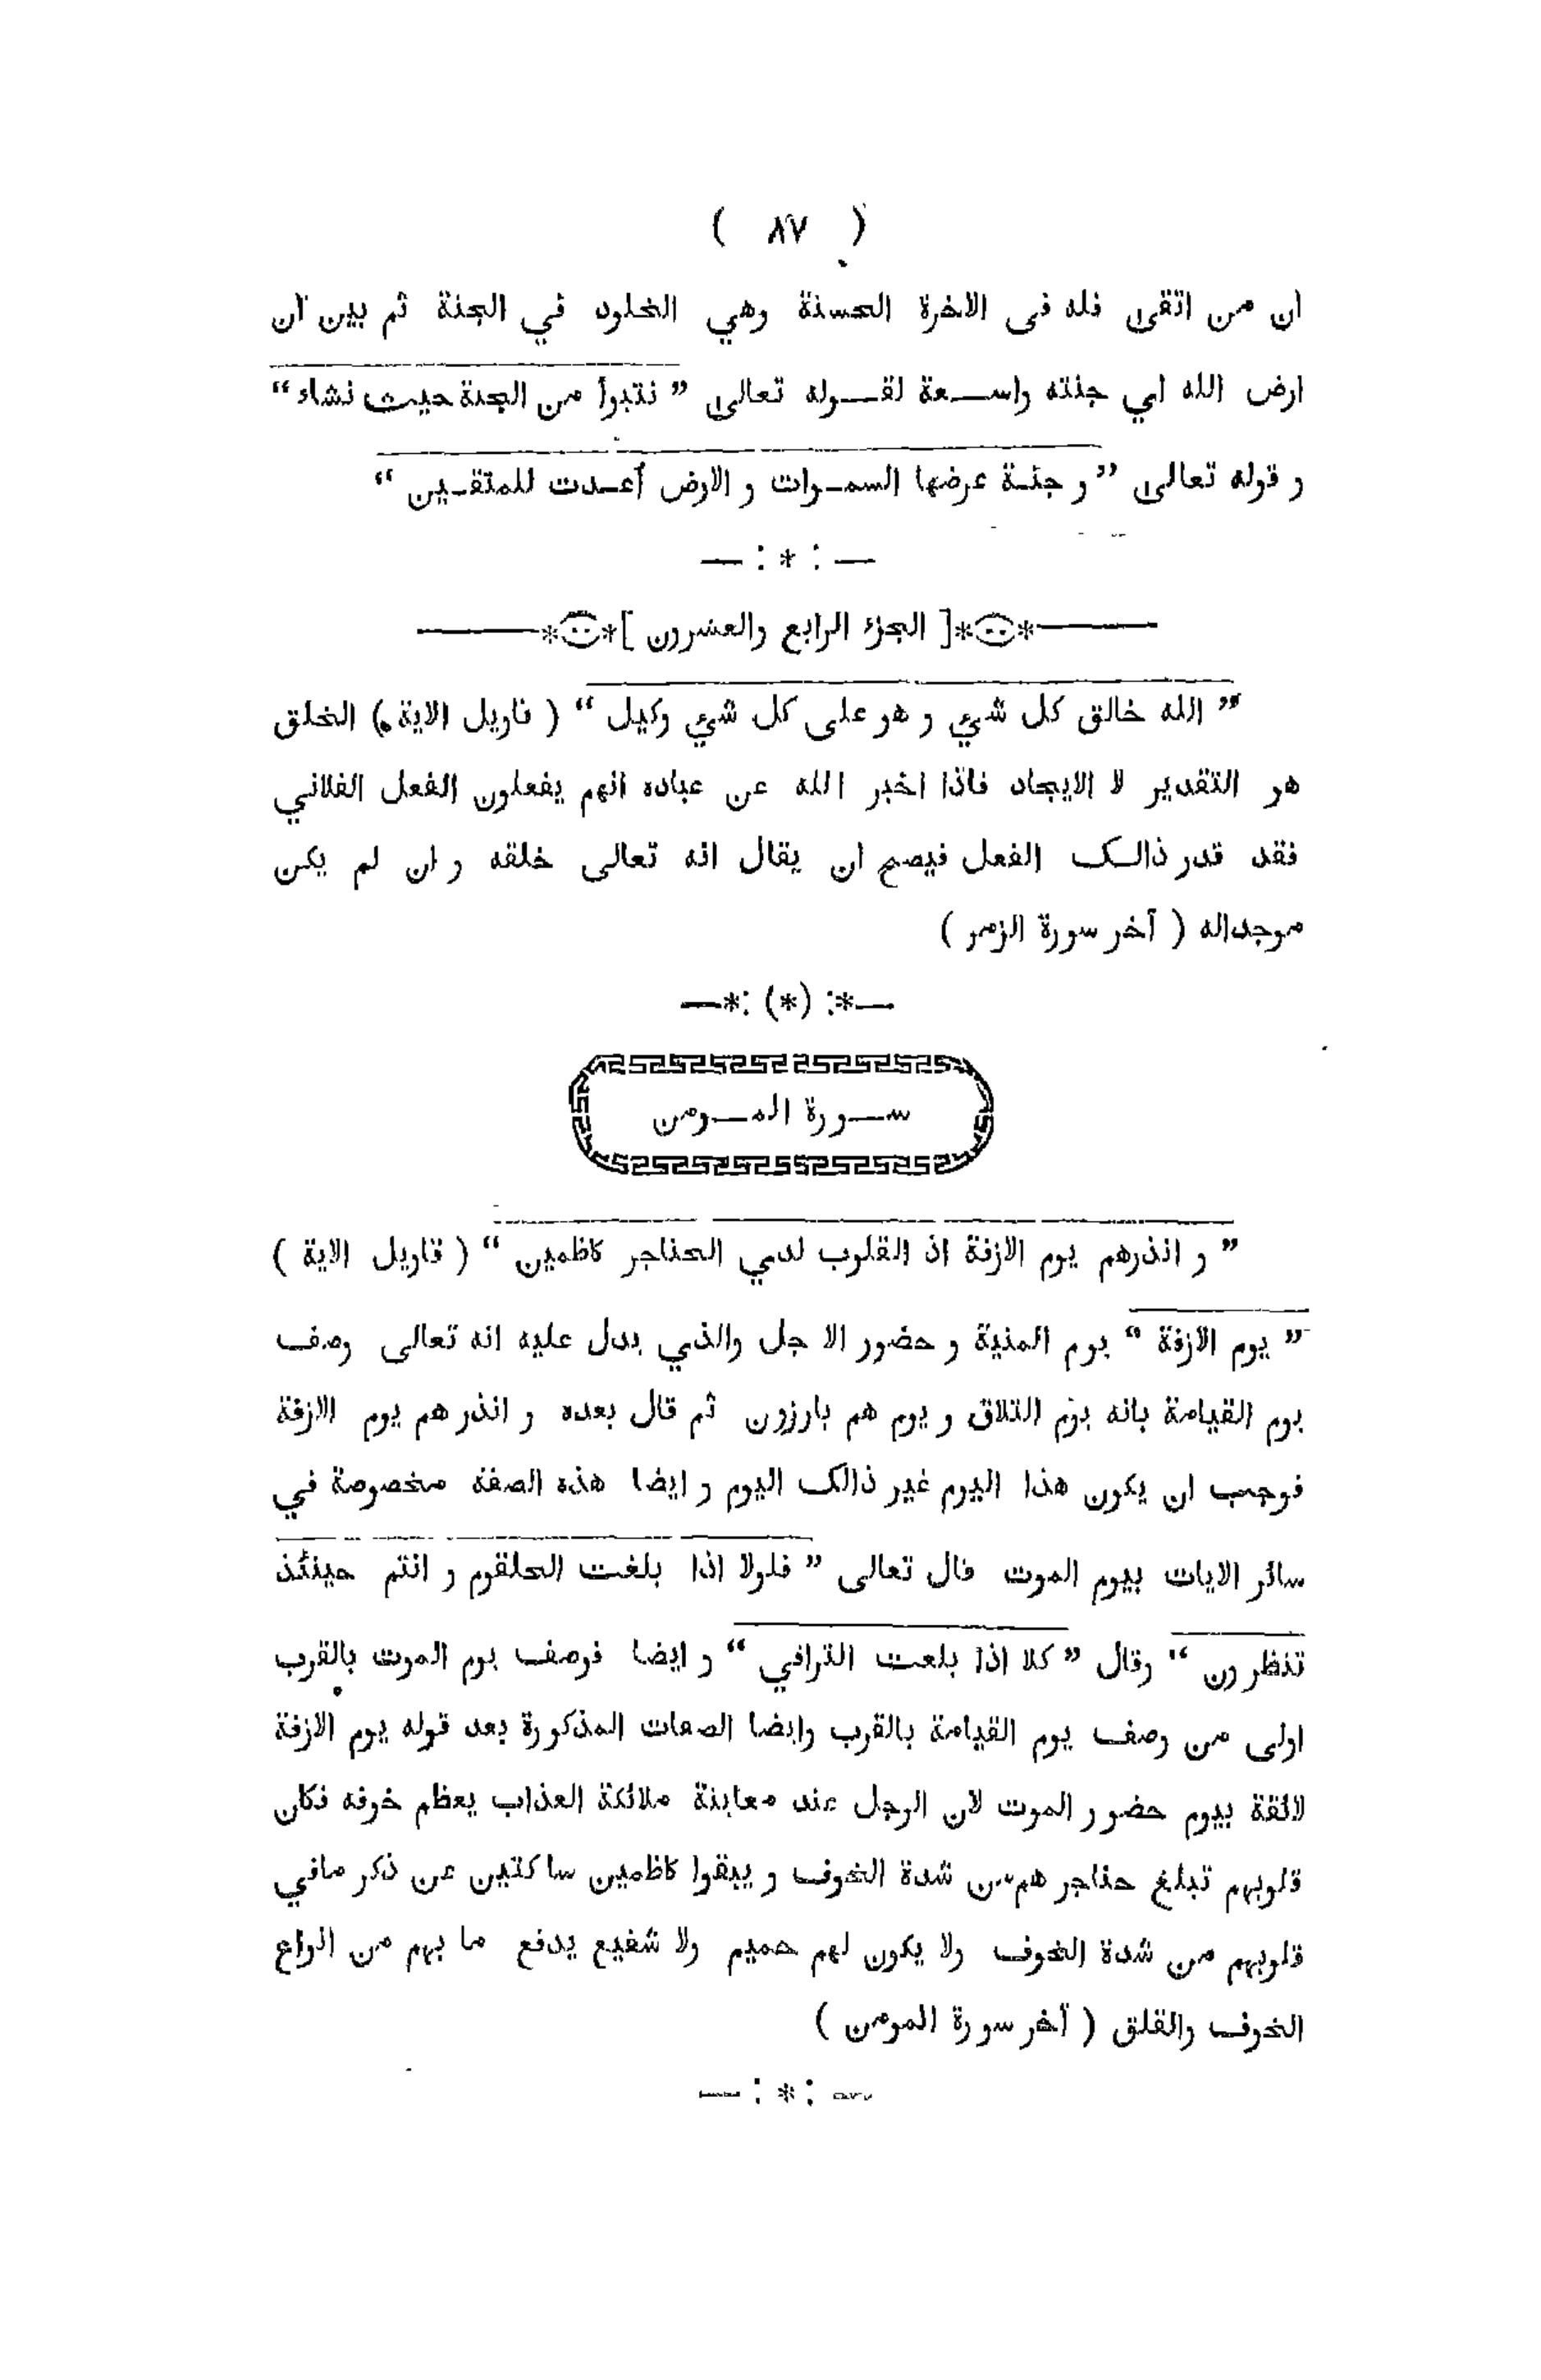 ( ٨٧ )
ان من اتقى فله فى الاخرة الحسنة وهي الخلود في الجنة ثم بين ان
ارض الله اي جنته واســعة لقــوله تعالى ” نتبوأ من الجنة حيث نشاء “
و قوله تعالى ” و جنـة عرضها السمـوات و الارض أعـدت للمتقـين “
— : * : —
*[ الجزء الرابع والعشرون ]*
” الله خالق كل شيء و هو على كل شيء وكيل “ ( تاويل الاية ) الخلق
هو التقدير لا الايجاد فاذا اخبر الله عن عباده انهم يفعلون الفعل الفلاني
فقد قدر ذالـك الفعل فيصح ان يقال انه تعالى خلقه و ان لم يكن
موجداله ( آخر سورة الزمر )
—*: (*) :*—
ســورة المــومن
” و انذرهم يوم الازفة اذ القلوب لدي الحناجر كاظمين “ ( تاويل الاية )
” يوم الازفة “ يوم المنية و حضور الا جل والذي يدل عليه انه تعالى وصف
يوم القيامة بانه يوم التلاق و يوم هم بارزون ثم قال بعده و انذر هم يوم الازفة
فوجب ان يكون هذا اليوم غير ذالك اليوم و ايضا هذه الصفة مخصوصة في
سائر الايات بيوم الموت قال تعالى ” فلولا اذا بلغت الحلقوم و انتم حينئذ
تنظرون “ وقال ” كلا اذا بلعت التراقي “ و ايضا فوصف يوم الموت بالقرب
اولى من وصف يوم القيامة بالقرب وايضا الصفات المذكورة بعد قوله يوم الازفة
لائقة بيوم حضور الموت لان الرجل عند معاينة ملائكة العذاب يعظم خوفه فكان
قلوبهم تبلغ حناجر هم من شدة الخوف و يبقوا كاظمين ساكتين عن ذكر مافي
قلوبهم من شدة الخوف ولا يكون لهم حميم ولا شفيع يدفع ما بهم من انواع
الخوف والقلق ( آخر سورة المومن )
— : * : —